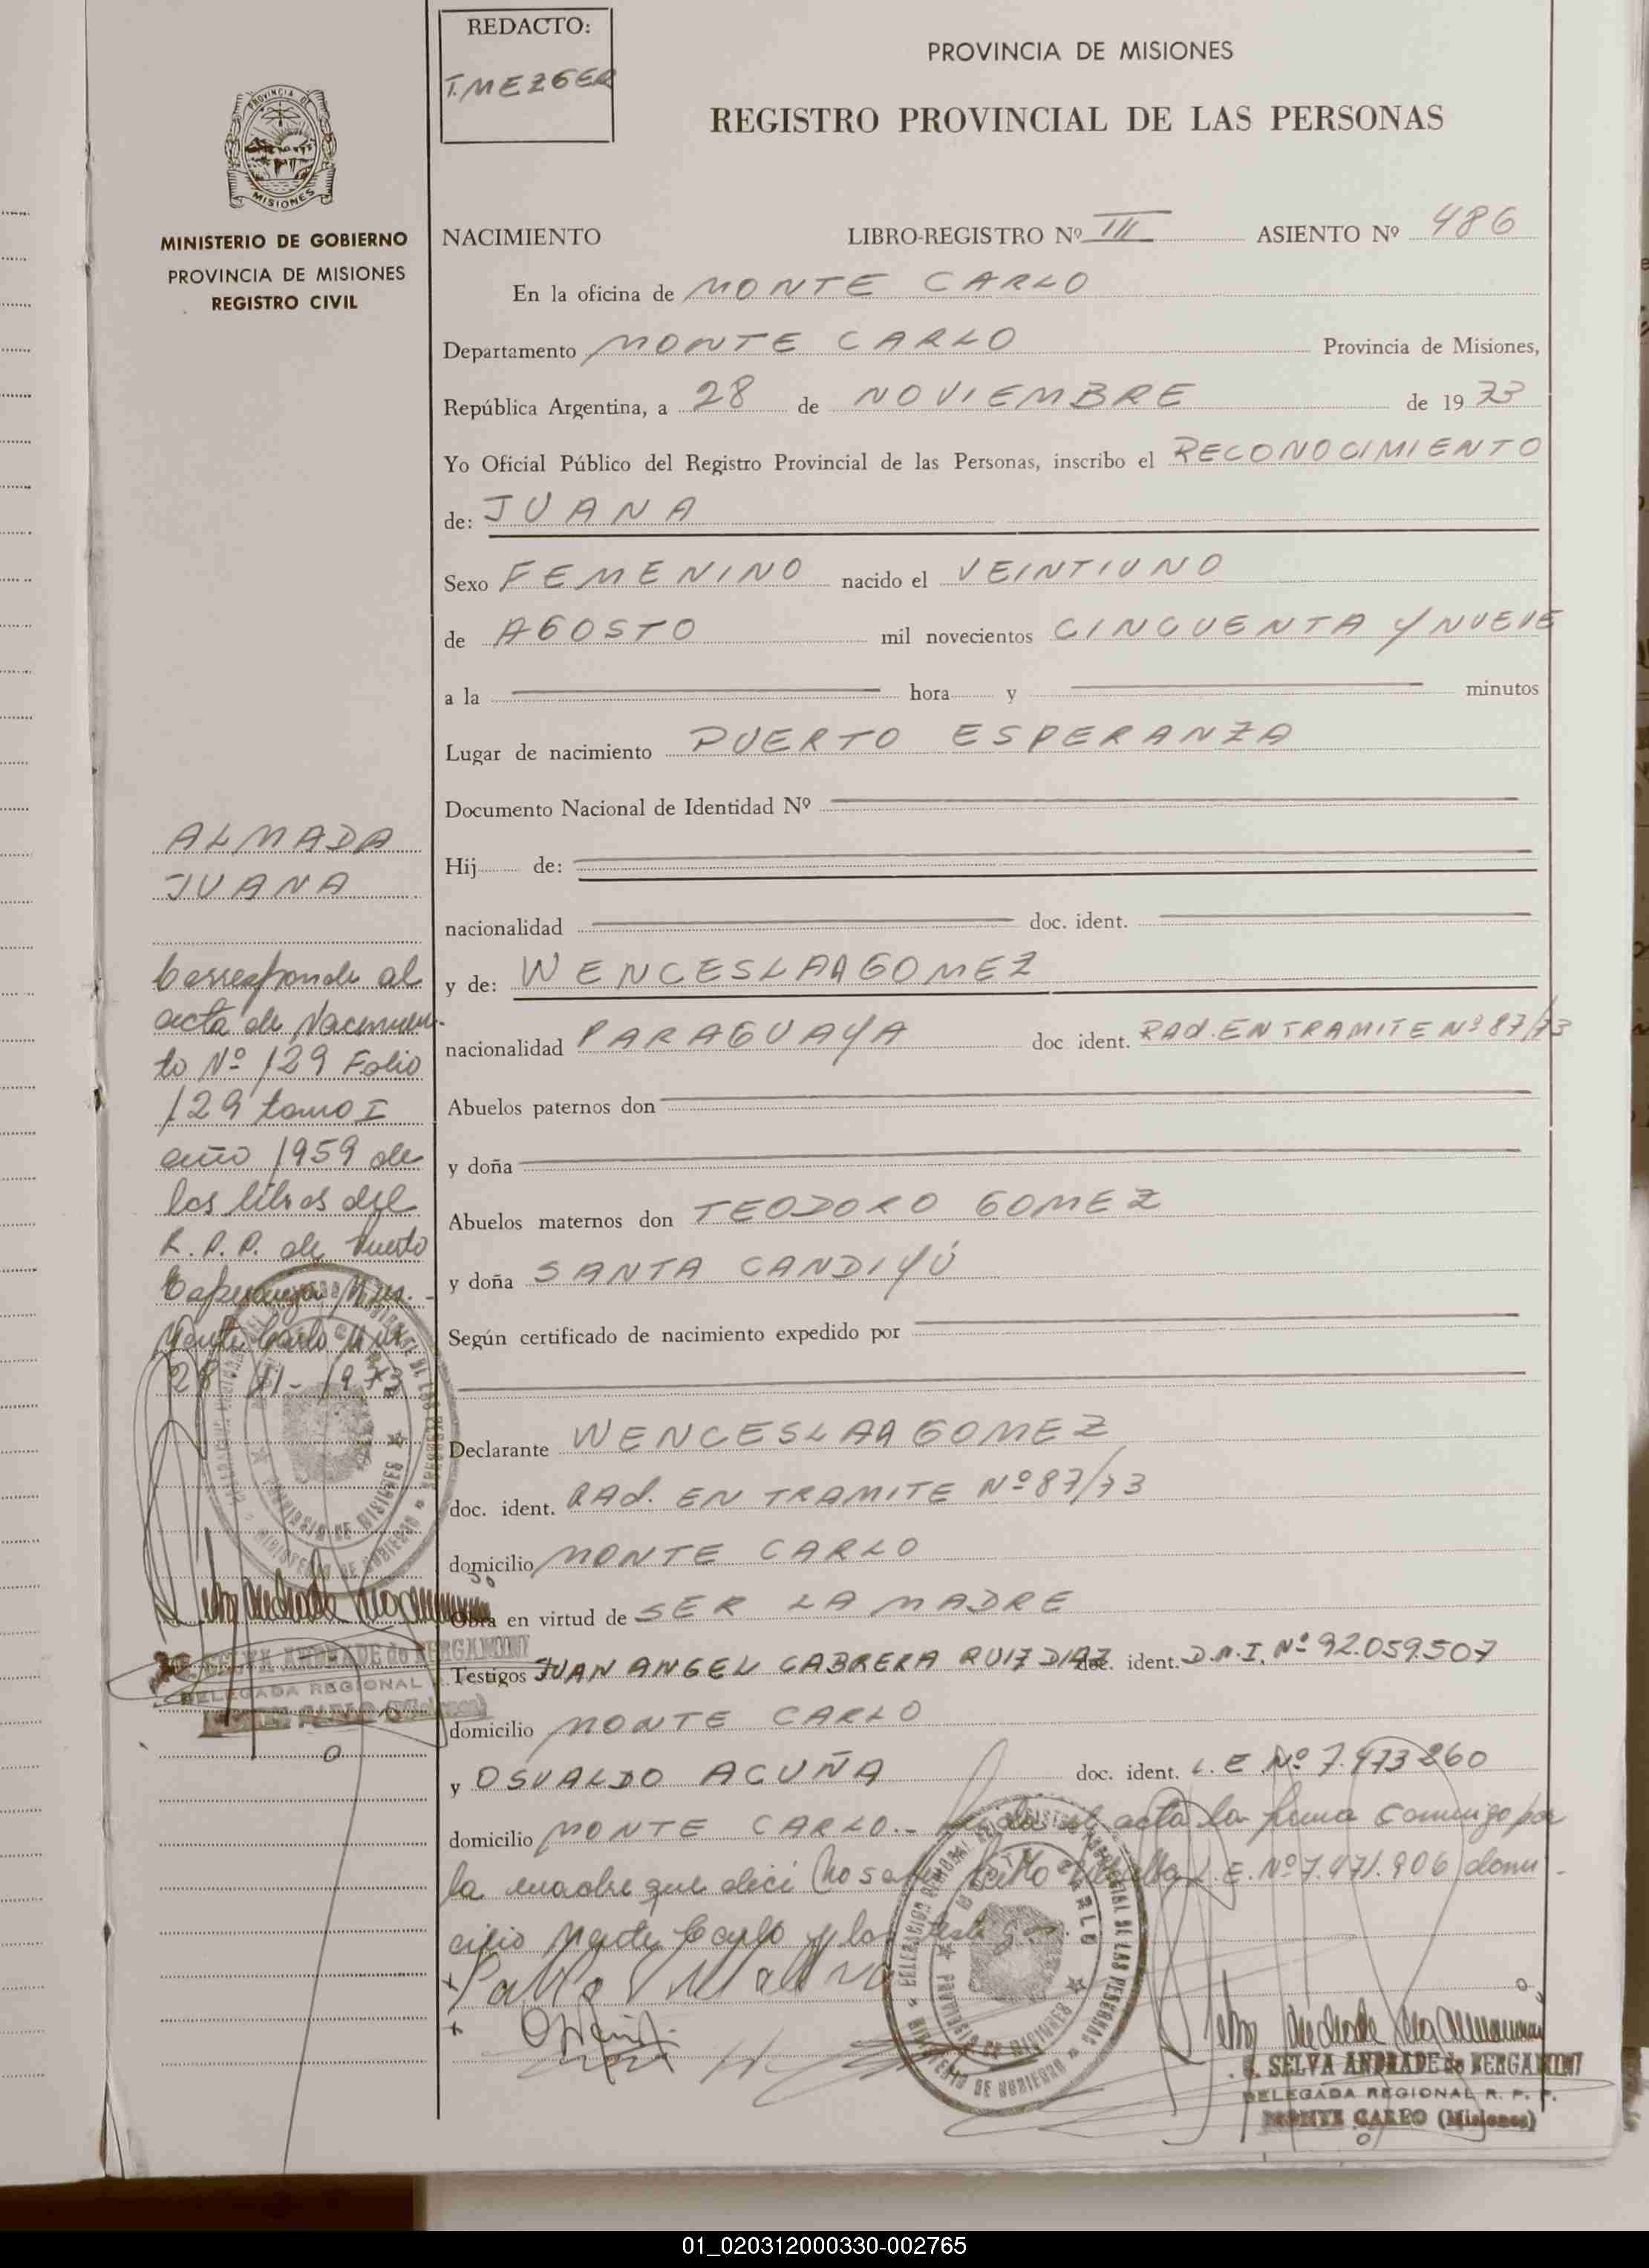 REDACTO:
T. MEZGER
PROVINCIA DE MISIONES
REGISTRO PROVINCIAL DE LAS PERSONAS
PROVINCIA DE
MISIONES
MINISTERIO DE GOBIERNO
PROVINCIA DE MISIONES
REGISTRO CIVIL
NACIMIENTO LIBRO-REGISTRO Nº III ASIENTO Nº 486
En la oficina de MONTE CARLO
Departamento MONTE CARLO Provincia de Misiones,
República Argentina, a 28 de NOVIEMBRE de 1973
Yo Oficial Público del Registro Provincial de las Personas, inscribo el RECONOCIMIENTO
de: JUANA
Sexo FEMENINO nacido el VEINTIUNO
de AGOSTO mil novecientos CINCUENTA Y NUEVE
a la hora y minutos
Lugar de nacimiento PUERTO ESPERANZA
Documento Nacional de Identidad Nº
Hij de:
nacionalidad doc. ident.
y de: WENCESLAA GOMEZ
nacionalidad PARAGUAYA doc ident. RAd. EN TRAMITE Nº 87/73
Abuelos paternos don
y doña
Abuelos maternos don TEODORO GOMEZ
y doña SANTA CANDIYÚ
Según certificado de nacimiento expedido por
Declarante WENCESLAA GOMEZ
doc. ident. RAd. EN TRAMITE Nº 87/73
domicilio MONTE CARLO
Obra en virtud de SER LA MADRE
Testigos JUAN ANGEL CABRERA RUIZ DIAZ doc. ident. D.N.I. Nº 92.059.507
domicilio MONTE CARLO
y OSVALDO ACUÑA doc. ident. L.E Nº 7.473260
domicilio MONTE CARLO.- acta la firma conmigo por
la madre que deci no saber L.E. Nº 7.471.906 domi-
cilio Monte Carlo y los testigos.
Pablo Villalba
ALMADA
JUANA
Corresponde al
acta de Nacimien-
to Nº 129 Folio
129 tomo I
año 1959 de
los libros del
R.P.P. de Puerto
Esperanza Mnes.-
Monte Carlo Mnes
28-11-1973
PROVINCIA DE MISIONES
MINISTERIO DE GOBIERNO
SELVA ANDRADE de BERGAMINI
DELEGADA REGIONAL
MONTE CARLO (Misiones)
DELEGACION REGIONAL DEL REGISTRO PROVINCIAL DE LAS PERSONAS
MONTE CARLO
PROVINCIA DE MISIONES
MINISTERIO DE GOBIERNO
SELVA ANDRADE de BERGAMINI
DELEGADA REGIONAL R. P. P.
MONTE CARLO (Misiones)
01_020312000330-002765